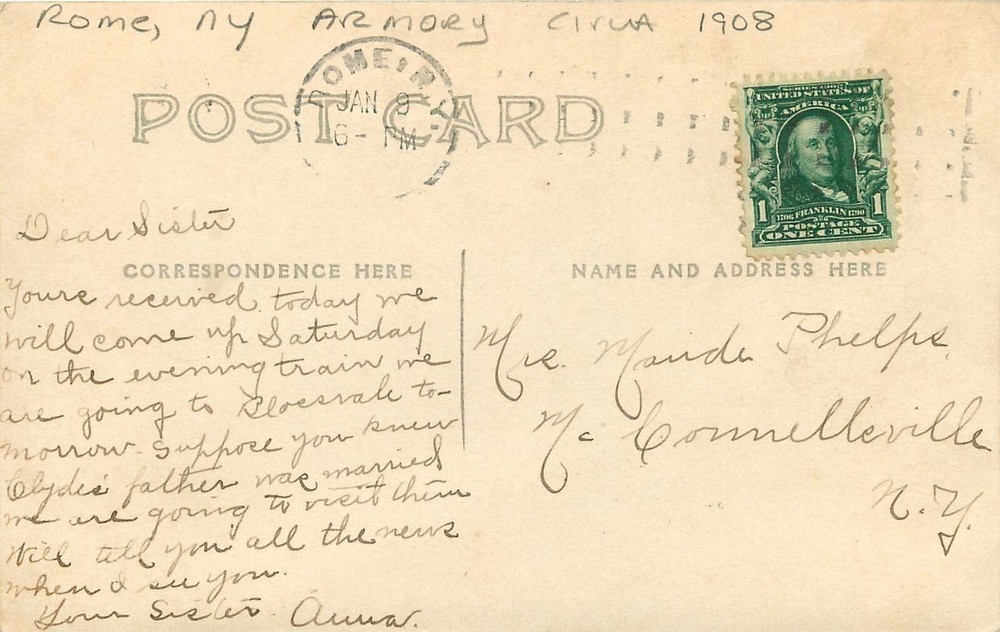 Rome, NY ARMORY CIRCA 1908
POST CARD
ROME, N.Y.
JAN 9
6 - PM
SERIES 1902
UNITED STATES OF
AMERICA
1706 FRANKLIN 1790
POSTAGE
1 1
ONE CENT
Dear Sister
CORRESPONDENCE HERE
Yours received today we
will come up Saturday
on the evening train we
are going to Blossvale to-
morrow. Suppose you knew
Clydes father was married
we are going to visit them
Will tell you all the news
when I see you.
Your Sister Anna.
NAME AND ADDRESS HERE
Mrs. Maude Phelps,
Mc Connellsville
N.Y.